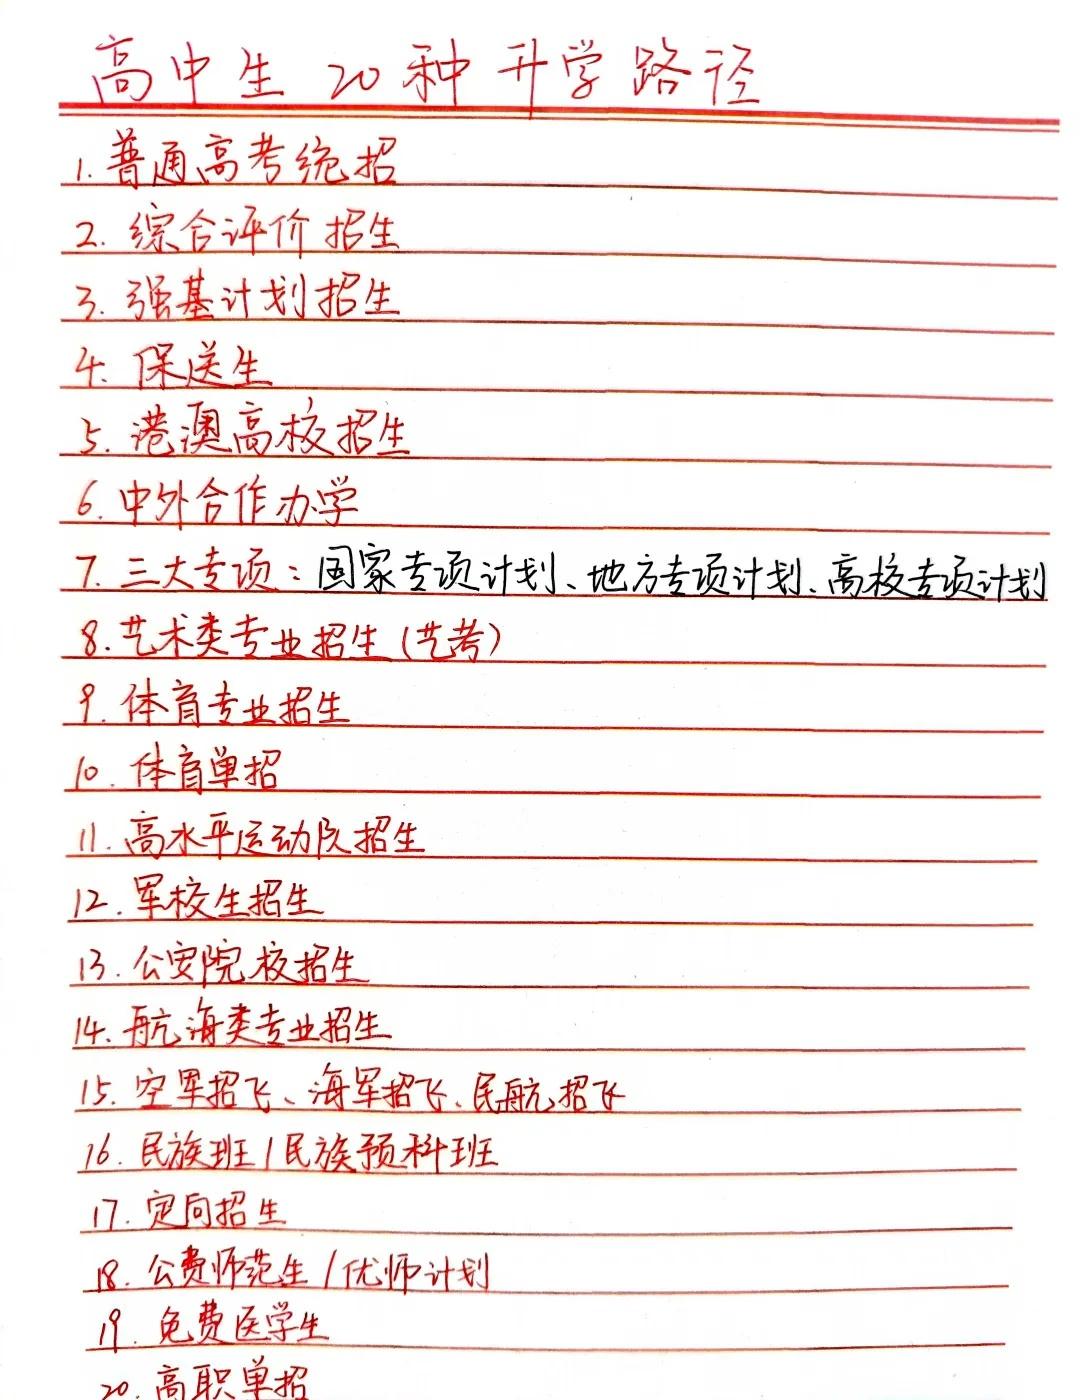 高中生20种升学路径
1.普通高考统招
2.综合评价招生
3.强基计划招生
4.保送生
5.港澳高校招生
6.中外合作办学
7.三大专项：国家专项计划、地方专项计划、高校专项计划
8.艺术类专业招生(艺考)
9.体育专业招生
10.体育单招
11.高水平运动队招生
12.军校生招生
13.公安院校招生
14.航海类专业招生
15.空军招飞、海军招飞、民航招飞
16.民族班/民族预科班
17.定向招生
18.公费师范生/优师计划
19.免费医学生
20.高职单招